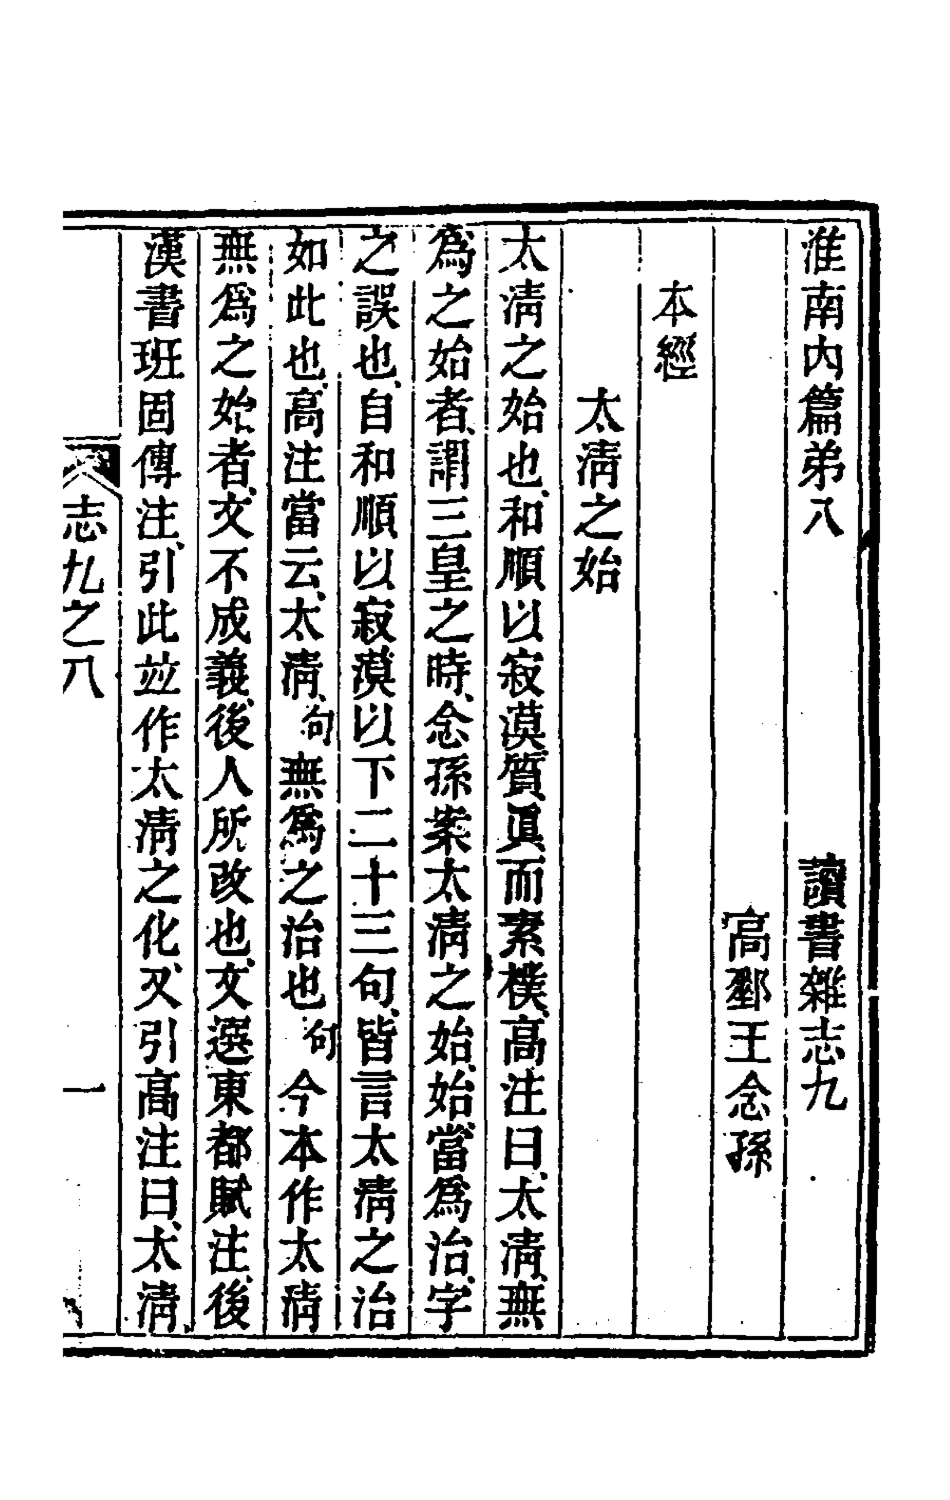 淮南內篇弟八　讀書雜志九
高郵王念孫
本經
太淸之始
太淸之始也、和順以寂漠、質眞而素樸、高注曰、太淸、無
爲之始者、謂三皇之時、念孫案太淸之始、始當爲治、字
之誤也、自和順以寂漠以下二十三句、皆言太淸之治
如此也、高注當云、太淸、句無爲之治也句今本作太淸
無爲之始者、文不成義、後人所改也、文選東都賦注、後
漢書班固傳注、引此竝作太淸之化、又引高注曰、太淸、
志九之八
一